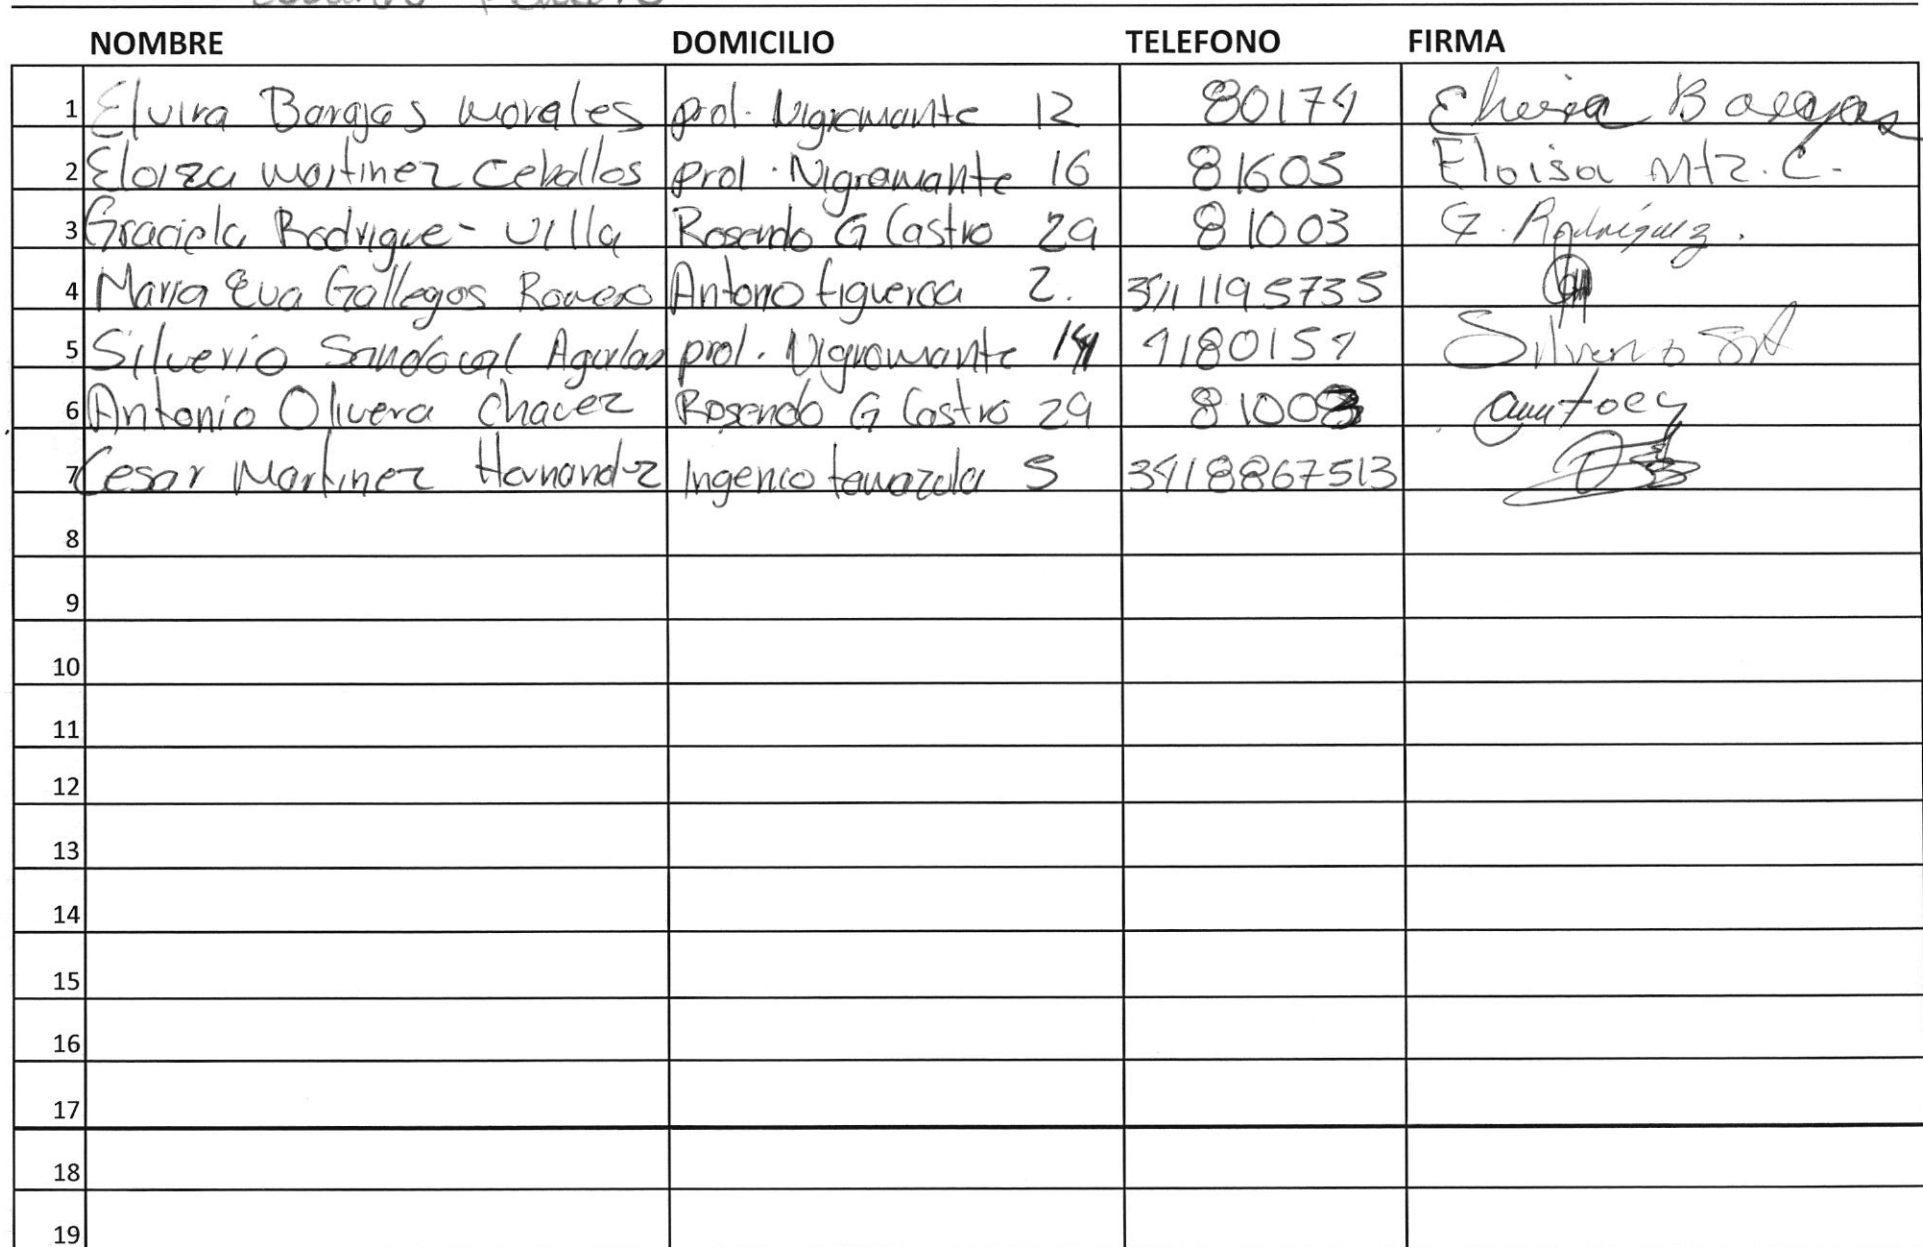 NOMBRE DOMICILIO TELEFONO FIRMA
1 Elvira Barajas Morales prol. Nigromante 12 80174 Barajas
2 Eloiza Martinez Ceballos prol. Nigromante 16 81605 Eloisa Mtz. C.
3 Graciela Rodrigue- Villa Rosendo G Castro 29 81003 G. Rodríguez.
4 Maria Eva Gallegos Romero Antonio figueroa 2. 3411195735
5 Silverio Sandoval Aguilar prol. Nigromante 4180154 Silverio SA
6 Antonio Olivera Chavez Rosendo G Castro 29 81003
7 Cesar Martinez Hernandez Ingenio tamazula 5 3418867513
8
9
10
11
12
13
14
15
16
17
18
19